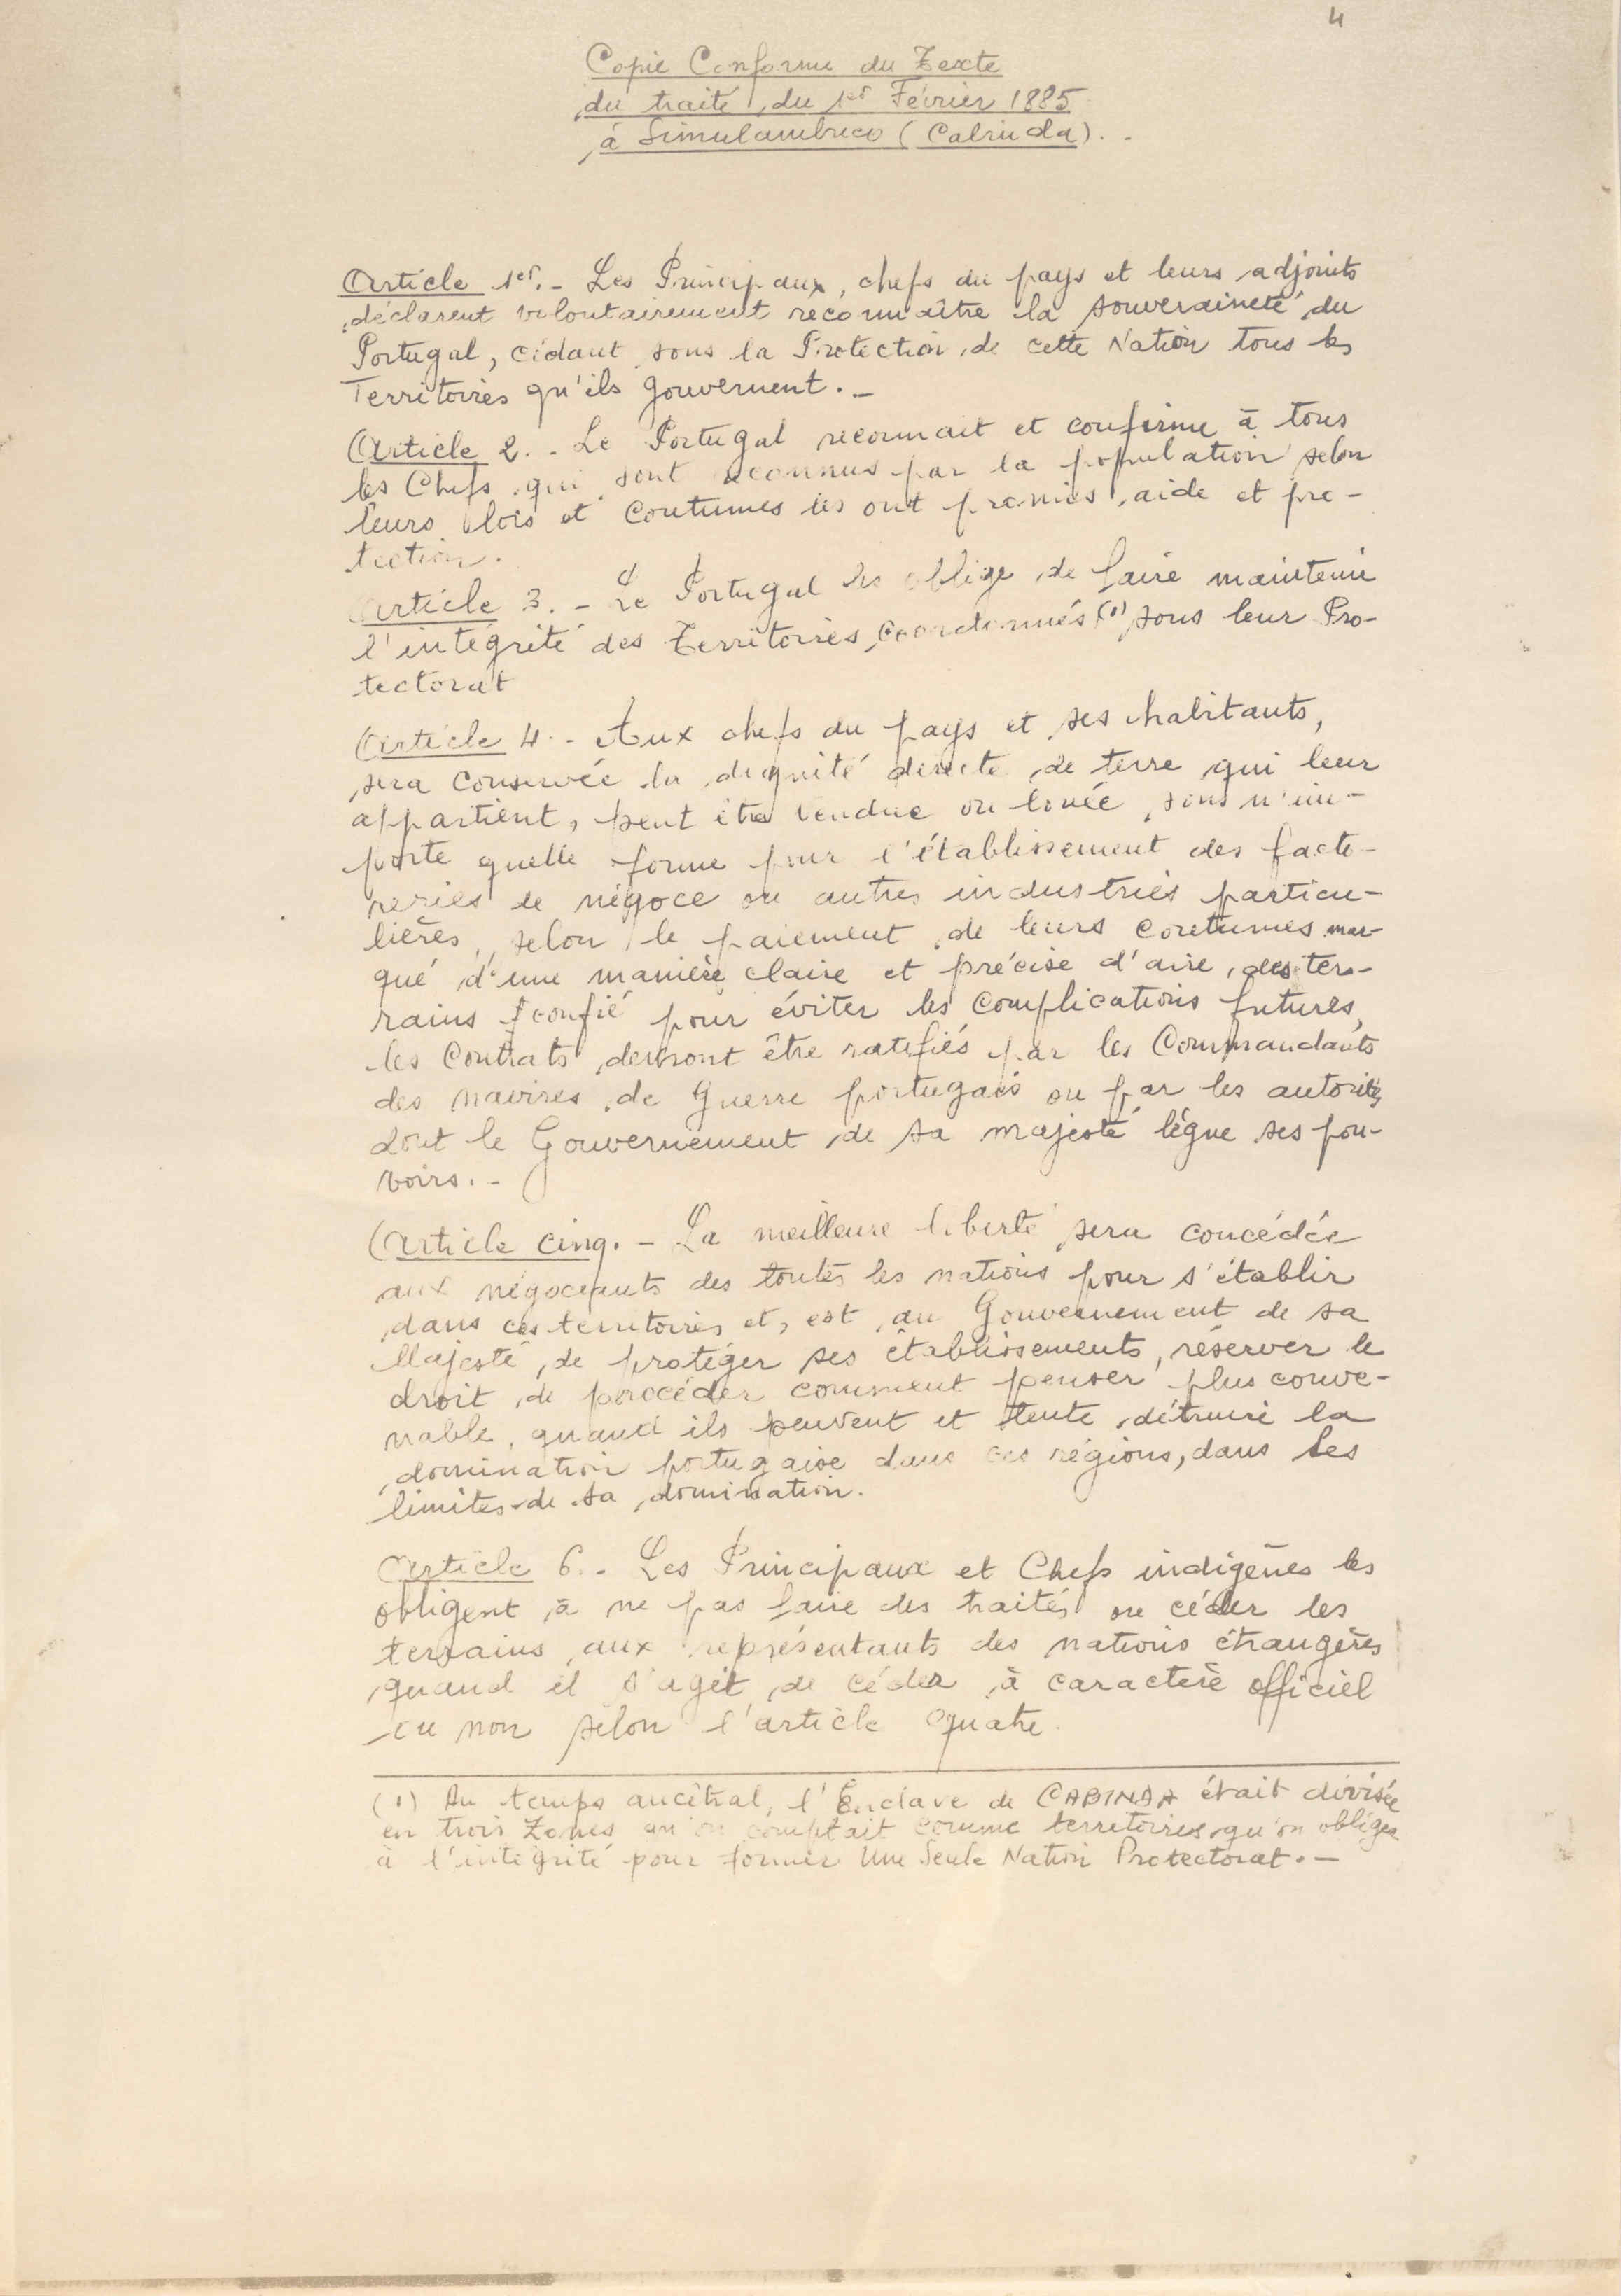 4
Copie Conforme du Texte
du traité du 1er Février 1885
à Simulambuco (Cabinda). -
Article 1er. - Les Principaux, chefs du pays et leurs adjoints
déclarent volontairement reconnaître la souveraineté du
Portugal, cédant sous la Protection de cette Nation tous les
Territoires qu'ils gouvernent. -
Article 2. - Le Portugal reconnait et confirme à tous
les Chefs qui sont reconnus par la population selon
leurs lois et coutumes les ont promis aide et pro-
tection.
Article 3. - Le Portugal les oblige de faire maintenir
l'intégrité des Territoires coordonnés (1) sous leur Pro-
tectorat
Article 4. - Aux chefs du pays et ses habitants,
sera conservée la dignité directe de terre qui leur
appartient, peut être vendue ou louée, sous n'im-
porte quelle forme pour l'établissement des facto-
reries de négoce ou autres industries particu-
lières, selon le paiement de leurs coutumes mar-
qué d'une manière claire et précise d'aire des ter-
rains confié pour éviter les complications futures,
les Contrats devront être ratifiés par les Commandants
des navires de Guerre portugais ou par les autorités
dont le Gouvernement de sa majesté lègue ses pou-
voirs. -
Article cinq. - La meilleure liberté sera concédée
aux négociants des toutes les nations pour s'établir
dans ces territoires et, est au Gouvernement de sa
Majesté, de protéger ses établissements, réserver le
droit de procéder comment penser plus conve-
nable, quand ils peuvent et tente détruire la
domination portugaise dans ces régions, dans les
limites de sa domination.
Article 6. - Les Principaux et Chefs indigènes les
obligent à ne pas faire des traités ou céder les
terrains aux représentants des nations étrangères
quand il s'agit de céder à caractère officiel
ou non selon l'article quatre.
(1) Au temps ancêtral, l'Enclave de CABINDA était divisée
en trois Zones qu'on comptait comme territoires qu'on obligea
à l'intégrité pour former Une Seule Nation Protectorat. -